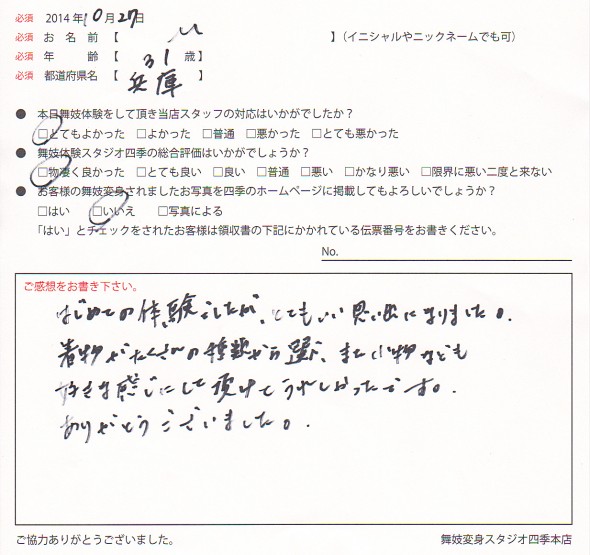 必須 2014年10月27日
必須 お名前【 M 】(イニシャルやニックネームでも可)
必須 年齢【 31 歳】
必須 都道府県名【 兵庫 】
● 本日舞妓体験をして頂き当店スタッフの対応はいかがでしたか？
□とてもよかった □よかった □普通 □悪かった □とても悪かった
● 舞妓体験スタジオ四季の総合評価はいかがでしょうか？
□物凄く良かった □とても良い □良い □普通 □悪い □かなり悪い □限界に悪い二度と来ない
● お客様の舞妓変身されましたお写真を四季のホームページに掲載してもよろしいでしょうか？
□はい □いいえ □写真による
「はい」とチェックをされたお客様は領収書の下記にかかれている伝票番号をお書きください。
No.
ご感想をお書き下さい。
はじめての体験でしたが、とてもいい思い出になりました。
着物がたくさんの種類から選べ、また小物なども
好きな感じにして頂けてうれしかったです。
ありがとうございました。
ご協力ありがとうございました。
舞妓変身スタジオ四季本店